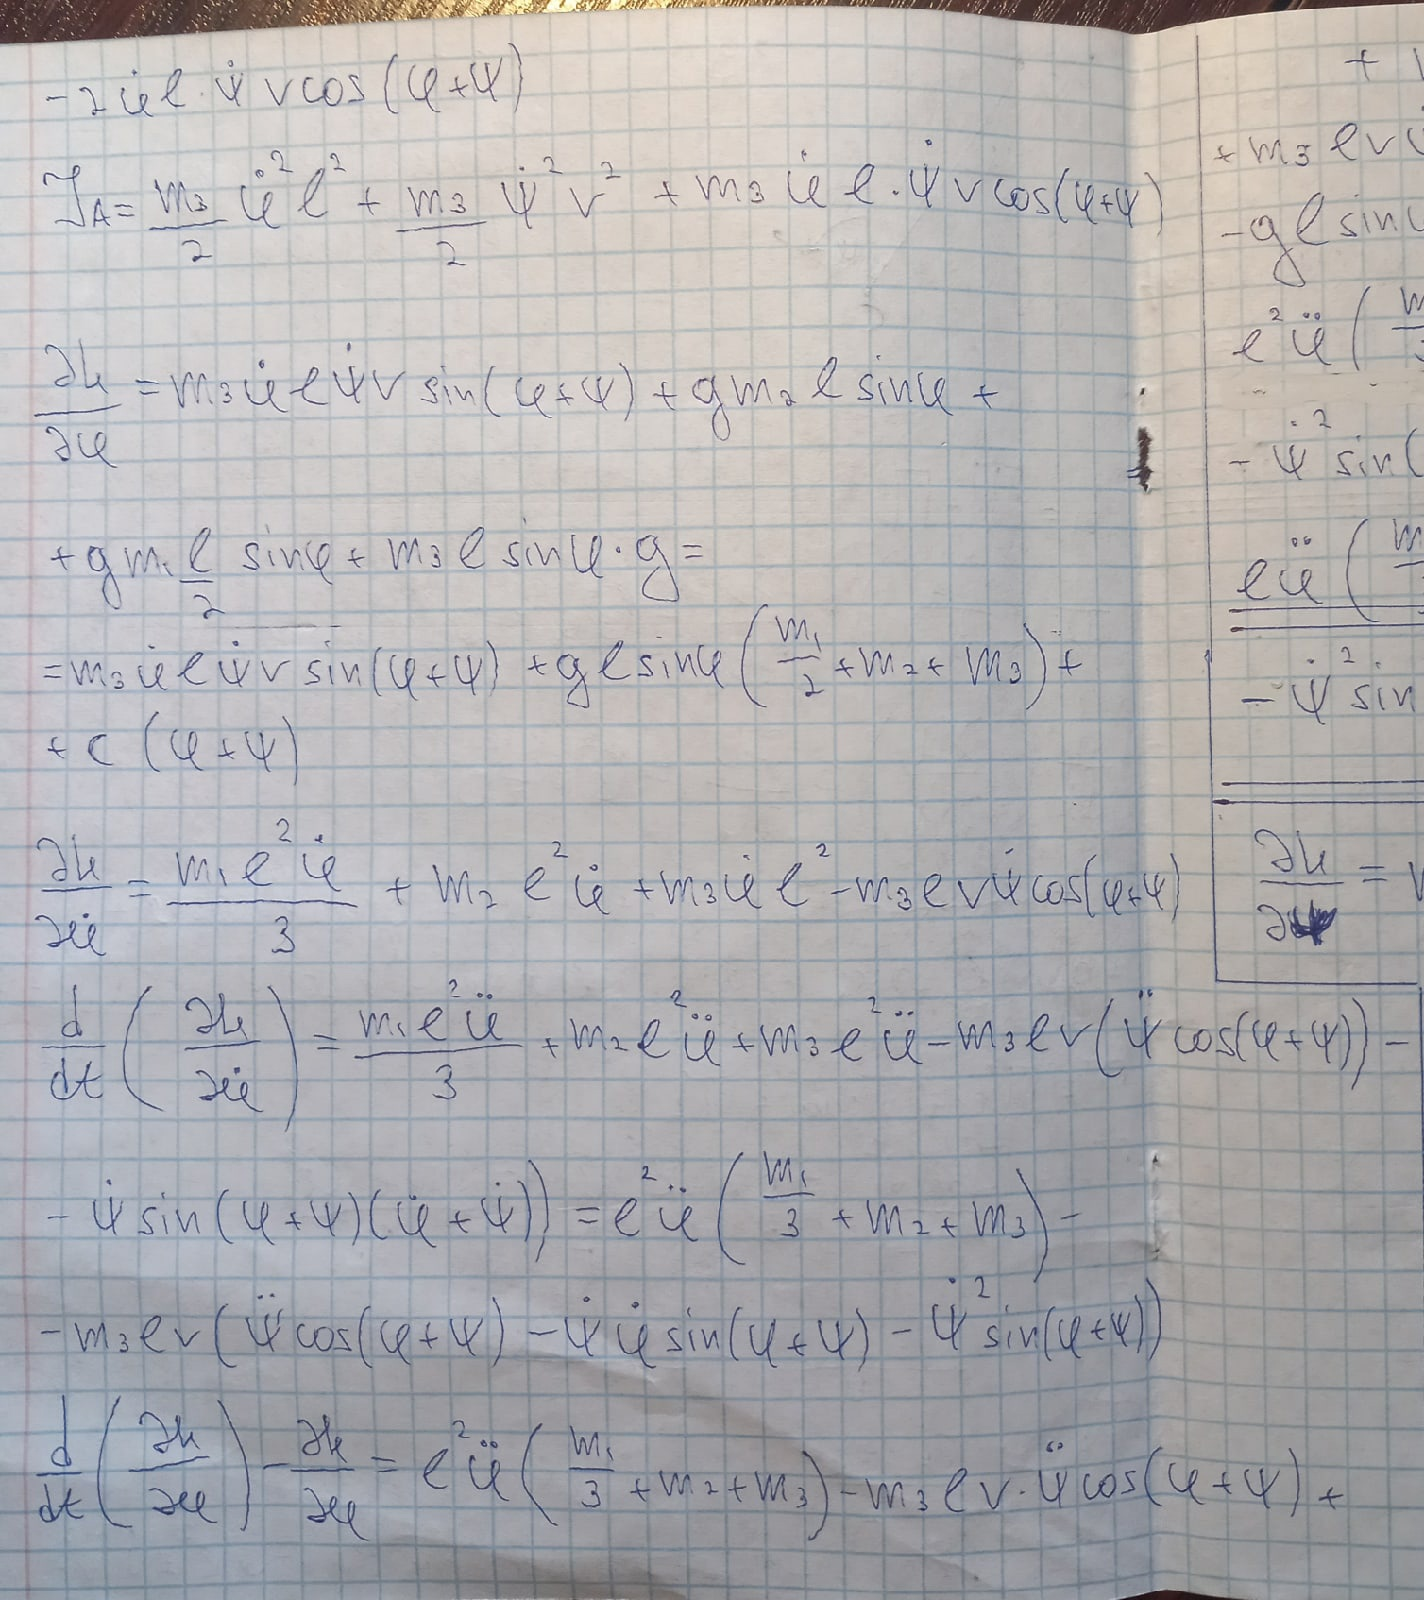 -2φ̇l·ψ̇ r cos(φ+ψ)
T_A = m₃/2 φ̇²l² + m₃/2 ψ̇²r² + m₃φ̇l·ψ̇ r cos(φ+ψ)
∂L/∂φ = m₃φ̇lψ̇r sin(φ+ψ) + gm₂l sinφ +
+ gm₁ l/2 sinφ + m₃l sinφ·g =
= m₃φ̇lψ̇r sin(φ+ψ) + gl sinφ (m₁/2 + m₂ + m₃) +
+ c(φ+ψ)
∂L/∂φ̇ = m₁l²φ̇/3 + m₂l²φ̇ + m₃φ̇l² - m₃lrψ̇cos(φ+ψ)
d/dt (∂L/∂φ̇) = m₁l²φ̈/3 + m₂l²φ̈ + m₃l²φ̈ - m₃lr(ψ̈ cos(φ+ψ)) -
- ψ̇ sin(φ+ψ)(φ̇+ψ̇)) = l²φ̈ (m₁/3 + m₂ + m₃) -
- m₃lr(ψ̈cos(φ+ψ) - ψ̇φ̇ sin(φ+ψ) - ψ̇² sin(φ+ψ))
d/dt (∂L/∂φ) - ∂L/∂φ = l²φ̈ (m₁/3 + m₂ + m₃) - m₃lr·ψ̈cos(φ+ψ) +
+
+ m₃lr
- gl sin
l²φ̈ (m
- ψ̇² sin(
lφ̈ (m
- ψ̇² sin
∂L/∂ψ =